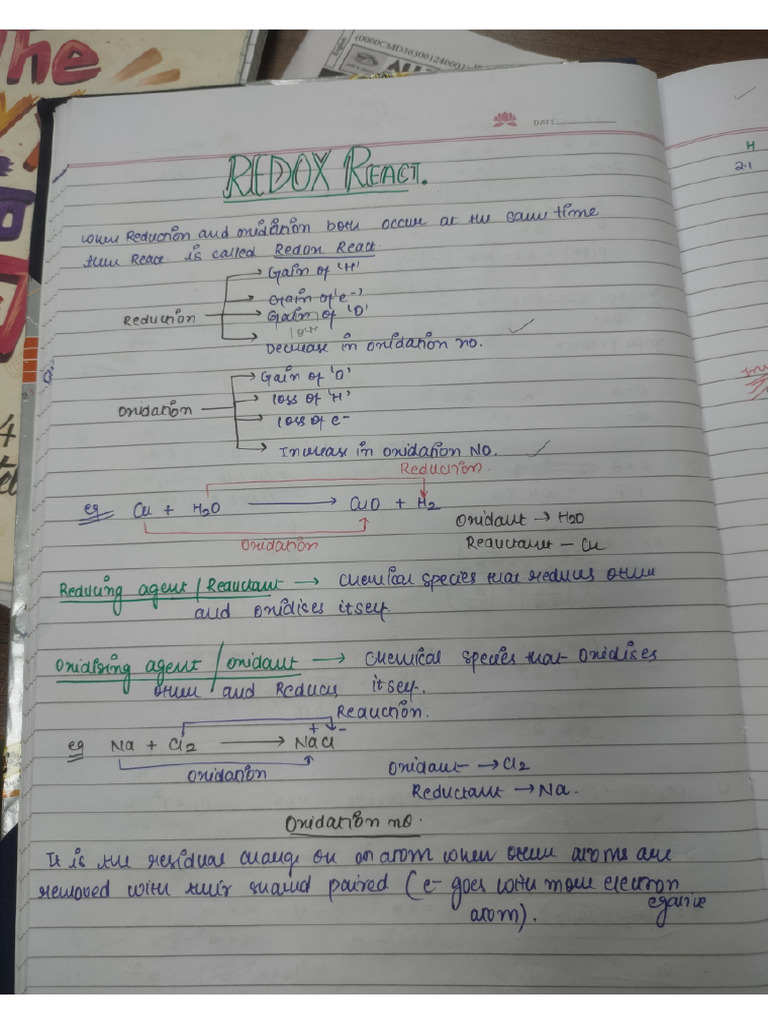 The
(0000CMD303001240001)
DATE
REDOX REACT.
when Reduction and oxidation both occur at the same time
then React is called Redox React.
Reduction
Gain of 'H'
Gain of 'e-'
Gain of 'O'
loss
Decrease in oxidation no.
Oxidation
Gain of 'O'
loss of 'H'
loss of e-
Increase in oxidation No.
Reduction.
eg Cu + H2O → CuO + H2
Oxidation
Oxidant → H2O
Reductant - Cu
Reducing agent / Reductant → chemical species that reduces other
and oxidises itself.
Oxidising agent / oxidant → chemical species that oxidises
other and Reduces itself.
Reduction.
+ -
eg Na + Cl2 → NaCl
Oxidation
Oxidant → Cl2
Reductant → Na.
Oxidation no.
It is the residual charge on an atom when other atoms are
removed with their shared paired (e- goes with more electron
egative
atom).
H
2.1
4